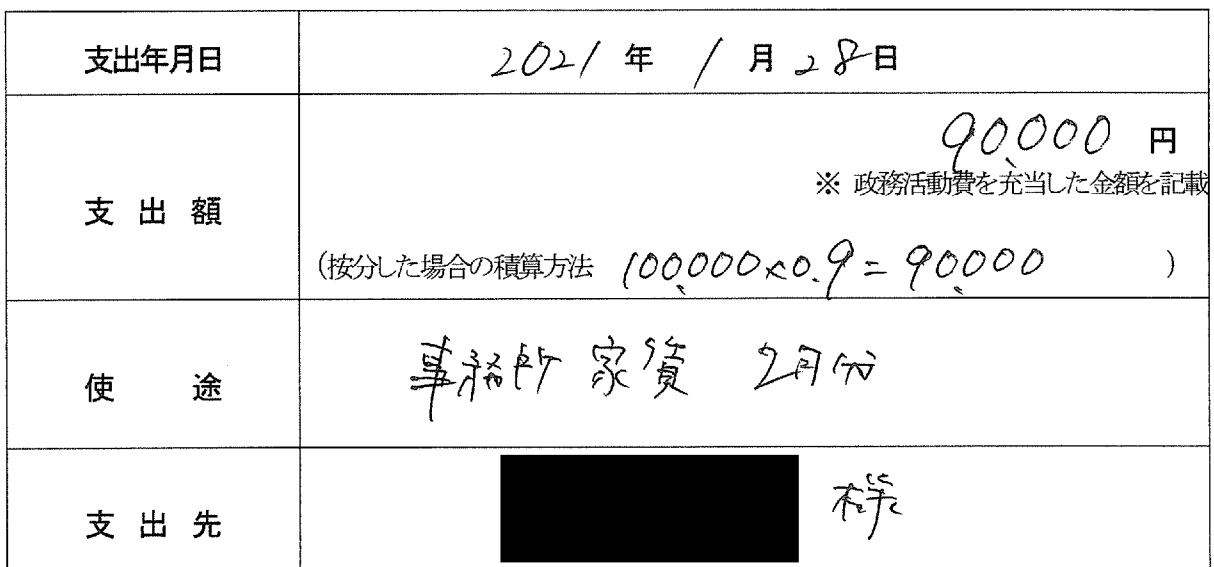 支出年月日 2021年 1月28日
90,000 円
※ 政務活動費を充当した金額を記載
支出額
(按分した場合の積算方法 100,000×0.9=90,000 )
使途 事務所家賃 2月分
支出先 様